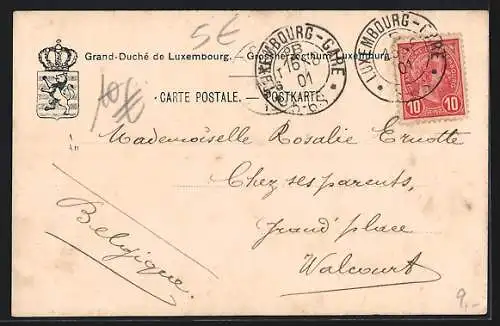 5€
Grand-Duché de Luxembourg. — Grossherzogthum Luxemburg.
LUXEMBOURG-GARE
01
LUXEMBOURG-GARE
01
10 10
10€
CARTE POSTALE. — POSTKARTE.
Mademoiselle Rosalie Ernotte
Chez ses parents,
Grand'place
Walcourt
Belgique.
9,-